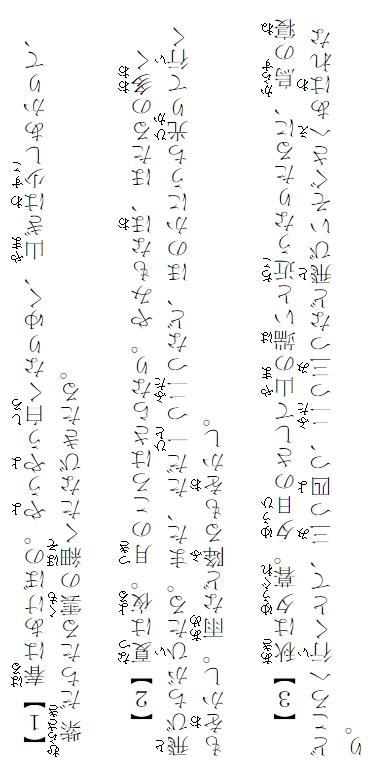 【1】
春はあけぼの。やうやう白くなりゆく、山ぎは少しあかりて、
紫だちたる雲の細くたなびきたる。
【2】
夏は夜。月のころはさらなり。やみもなほ、ほたるの多く
飛びちがひたる。また、ただ一つ二つなど、ほのかにうち光りて行く
もをかし。雨など降るもをかし。
【3】
秋は夕暮。夕日のさして山の端いと近うなりたるに、烏の寝
どころへ行くとて、三つ四つ、二つ三つなど飛びいそぐさへあはれな
り。